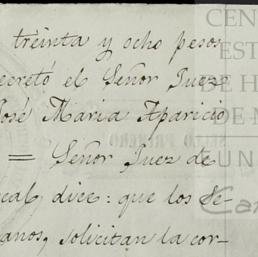 treinta y ocho pesos
ecretó el Señor Juez
José Maria Aparicio
= Señor Juez de
cal, dice: que los Se-
anos, solicitan la cor-
CEN
EST
DE H
DE M
UN